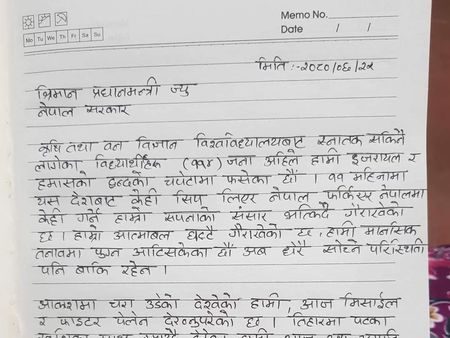 Memo No.
No Tu We Th Fr Sa Su
Date / /
मिति :- २०८०/०६/२५
श्रिमान प्रधानमन्त्री ज्यु
नेपाल सरकार
कृषि तथा वन विज्ञान विश्वविद्यालयबाट स्नातक सकिनै
लागेका विद्यार्थीहरू (११४) जना अहिले हामी इजरायल र
हमासको द्वन्दको चपेटामा फसेका छौं । ११ महिनामा
यस देशबाट केही सिप लिएर नेपाल फर्किएर नेपालमा
केही गर्ने हाम्रा सपनाको संसार भत्किदै गैराखेको
छ । हाम्रो आत्माबल घट्दै गैराखेको छ, हामी मानसिक
तनावमा पुग्न आटिसकेका छौं अब धेरै सोच्ने परिस्थिती
पनि बाकि रहेन ।
आकाशमा चरा उडेको देखेको हामी, आज मिसाईल
र फाइटर प्लेन देख्नुपरेको छ । तिहारमा पटका